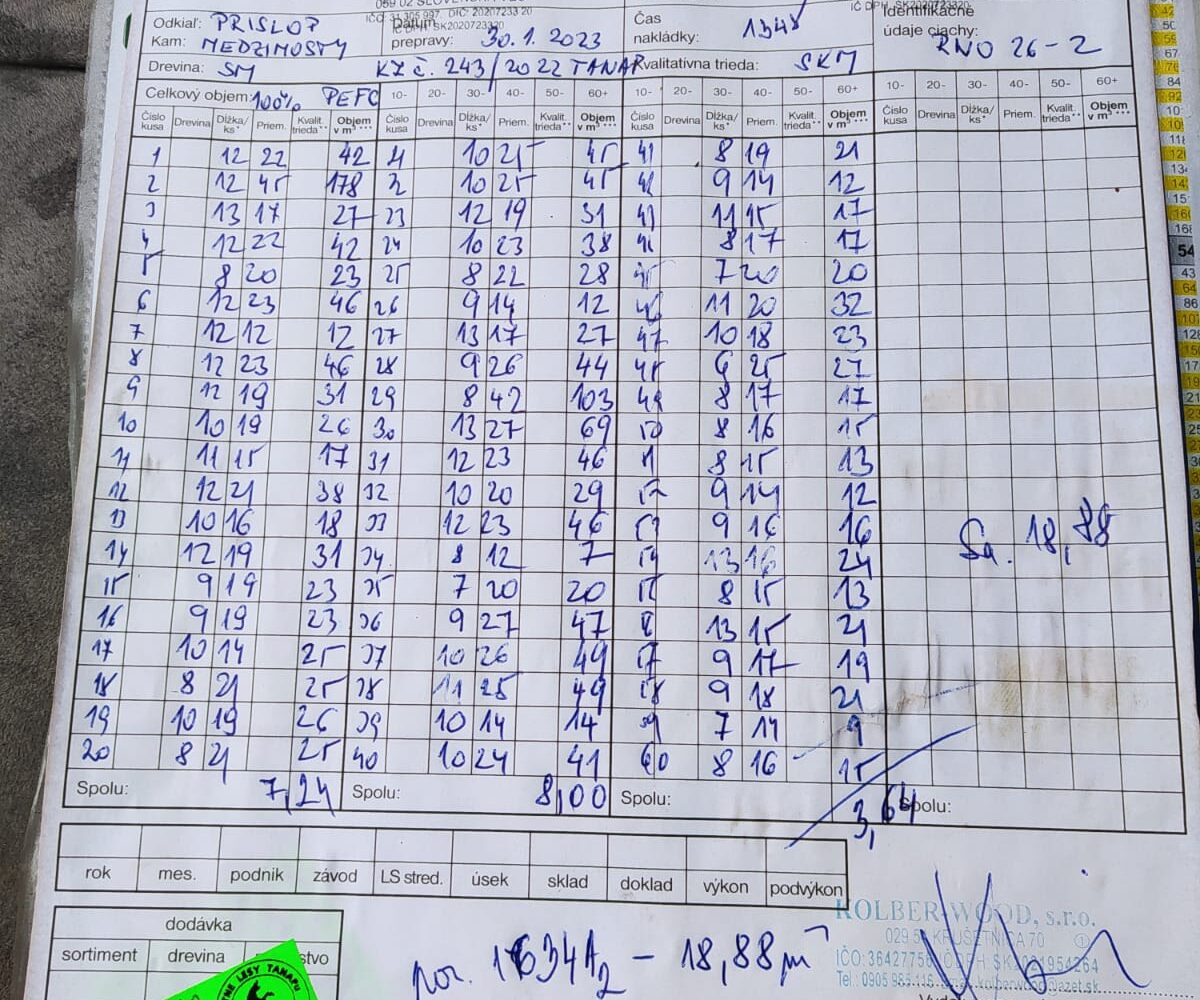 Odkiaľ: PRISLOP
IČO: 31 305 997, DIČ: 2020723320
Dátum
Čas
IČ DPH: SK2020723320
Identifikačné
Kam: MEDZIMOSTY
prepravy: 30.1.2023
nakládky: 1345
údaje ciachy: RNO 26-2
Drevina: SM KZ č. 243/2022 TANAP Kvalitatívna trieda: SKM
Celkový objem: 100% PEFC 10- 20- 30- 40- 50- 60+ 10- 20- 30- 40- 50- 60+ 10- 20- 30- 40- 50- 60+
Číslo kusa Drevina Dĺžka/ks* Priem. Kvalit. trieda** Objem v m³*** Číslo kusa Drevina Dĺžka/ks* Priem. Kvalit. trieda** Objem v m³*** Číslo kusa Drevina Dĺžka/ks* Priem. Kvalit. trieda** Objem v m³*** Číslo kusa Drevina Dĺžka/ks* Priem. Kvalit. trieda** Objem v m³***
1 12 22 42 21 10 25 45 41 8 19 21
2 12 45 178 22 10 25 45 42 9 14 12
3 13 17 27 23 12 19 31 43 11 15 17
4 12 22 42 24 10 23 38 44 8 17 17
5 8 20 23 25 8 22 28 45 7 20 20
6 12 23 46 26 9 14 12 46 11 20 32
7 12 12 12 27 13 17 27 47 10 18 23
8 12 23 46 28 9 26 44 48 6 25 27
9 12 19 31 29 8 42 103 49 8 17 17
10 10 19 26 30 13 27 69 50 8 16 15
11 11 15 17 31 12 23 46 51 8 15 13
12 12 21 38 32 10 20 29 52 9 14 12
13 10 16 18 33 12 23 46 53 9 16 16
14 12 19 31 34 8 12 7 54 13 16 24
15 9 19 23 35 7 20 20 55 8 15 13
16 9 19 23 36 9 27 47 56 13 15 21
17 10 14 25 37 10 26 49 57 9 17 19
18 8 21 25 38 11 25 49 58 9 18 21
19 10 19 26 39 10 14 14 59 7 14 9
20 8 21 25 40 10 24 41 60 8 16 15
Sa. 18,88
Spolu: 7,24 Spolu: 8,00 Spolu: 3,64 Spolu:
rok mes. podnik závod LS stred. úsek sklad doklad výkon podvýkon
dodávka
sortiment drevina
por. 1634A2 - 18,88 m³
KOLBER-WOOD, s.r.o.
KRUŠETNICA 70